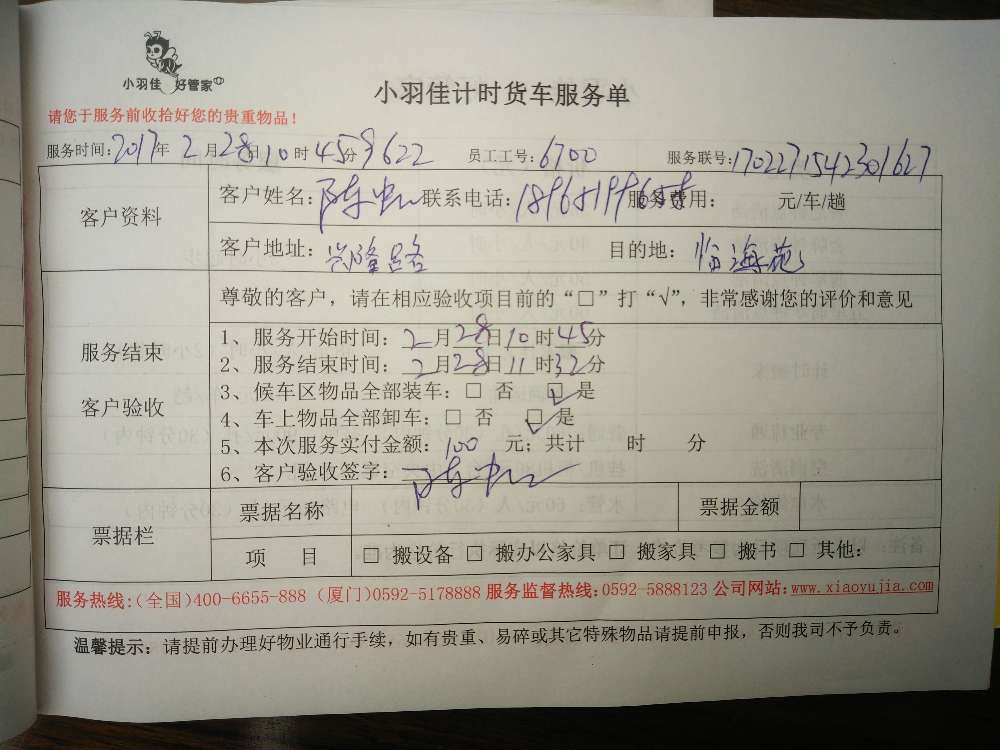 小羽佳 好管家
小羽佳计时货车服务单
请您于服务前收拾好您的贵重物品！
服务时间：2017年 2 月 28日 10 时 45分 9622 员工工号：6700 服务联号：1702271542301627
客户资料
客户姓名：陈 联系电话： 服务费用： 元/车/趟
客户地址：兴隆路 目的地：临海苑
尊敬的客户，请在相应验收项目前的“□”打“√”，非常感谢您的评价和意见
服务结束
客户验收
1、服务开始时间：2月28日10时45分
2、服务结束时间：2月28日11时32分
3、候车区物品全部装车：□ 否 ☑ 是
4、车上物品全部卸车：□ 否 ☑ 是
5、本次服务实付金额：100 元；共计 时 分
6、客户验收签字：陈
票据栏
票据名称 票据金额
项 目 □ 搬设备 □ 搬办公家具 □ 搬家具 □ 搬书 □ 其他：
服务热线：（全国）400-6655-888（厦门）0592-5178888 服务监督热线：0592-5888123 公司网站：www.xiaoyujia.com
温馨提示：请提前办理好物业通行手续，如有贵重、易碎或其它特殊物品请提前申报，否则我司不予负责。